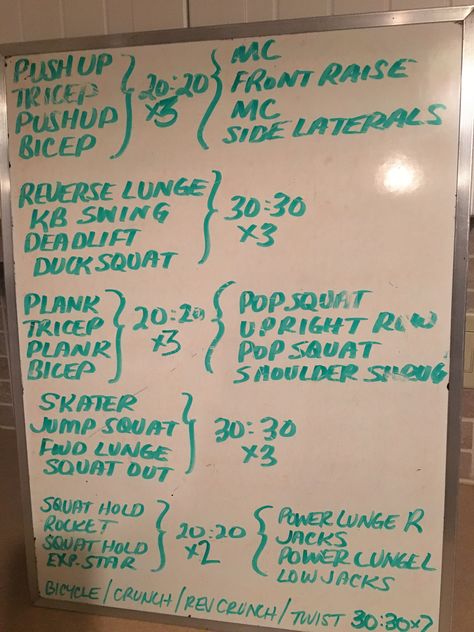 PUSH UP
TRICEP
PUSHUP
BICEP
20:20
x3
MC
FRONT RAISE
MC
SIDE LATERALS
REVERSE LUNGE
KB SWING
DEADLIFT
DUCK SQUAT
30:30
x3
PLANK
TRICEP
PLANK
BICEP
20:20
x3
POP SQUAT
UPRIGHT ROW
POP SQUAT
SHOULDER SHRUG
SKATER
JUMP SQUAT
FWD LUNGE
SQUAT OUT
30:30
x3
SQUAT HOLD
ROCKET
SQUAT HOLD
EXP. STAR
20:20
x2
POWER LUNGE R
JACKS
POWER LUNGE L
LOW JACKS
BICYCLE / CRUNCH / REV CRUNCH / TWIST 30:30 x2